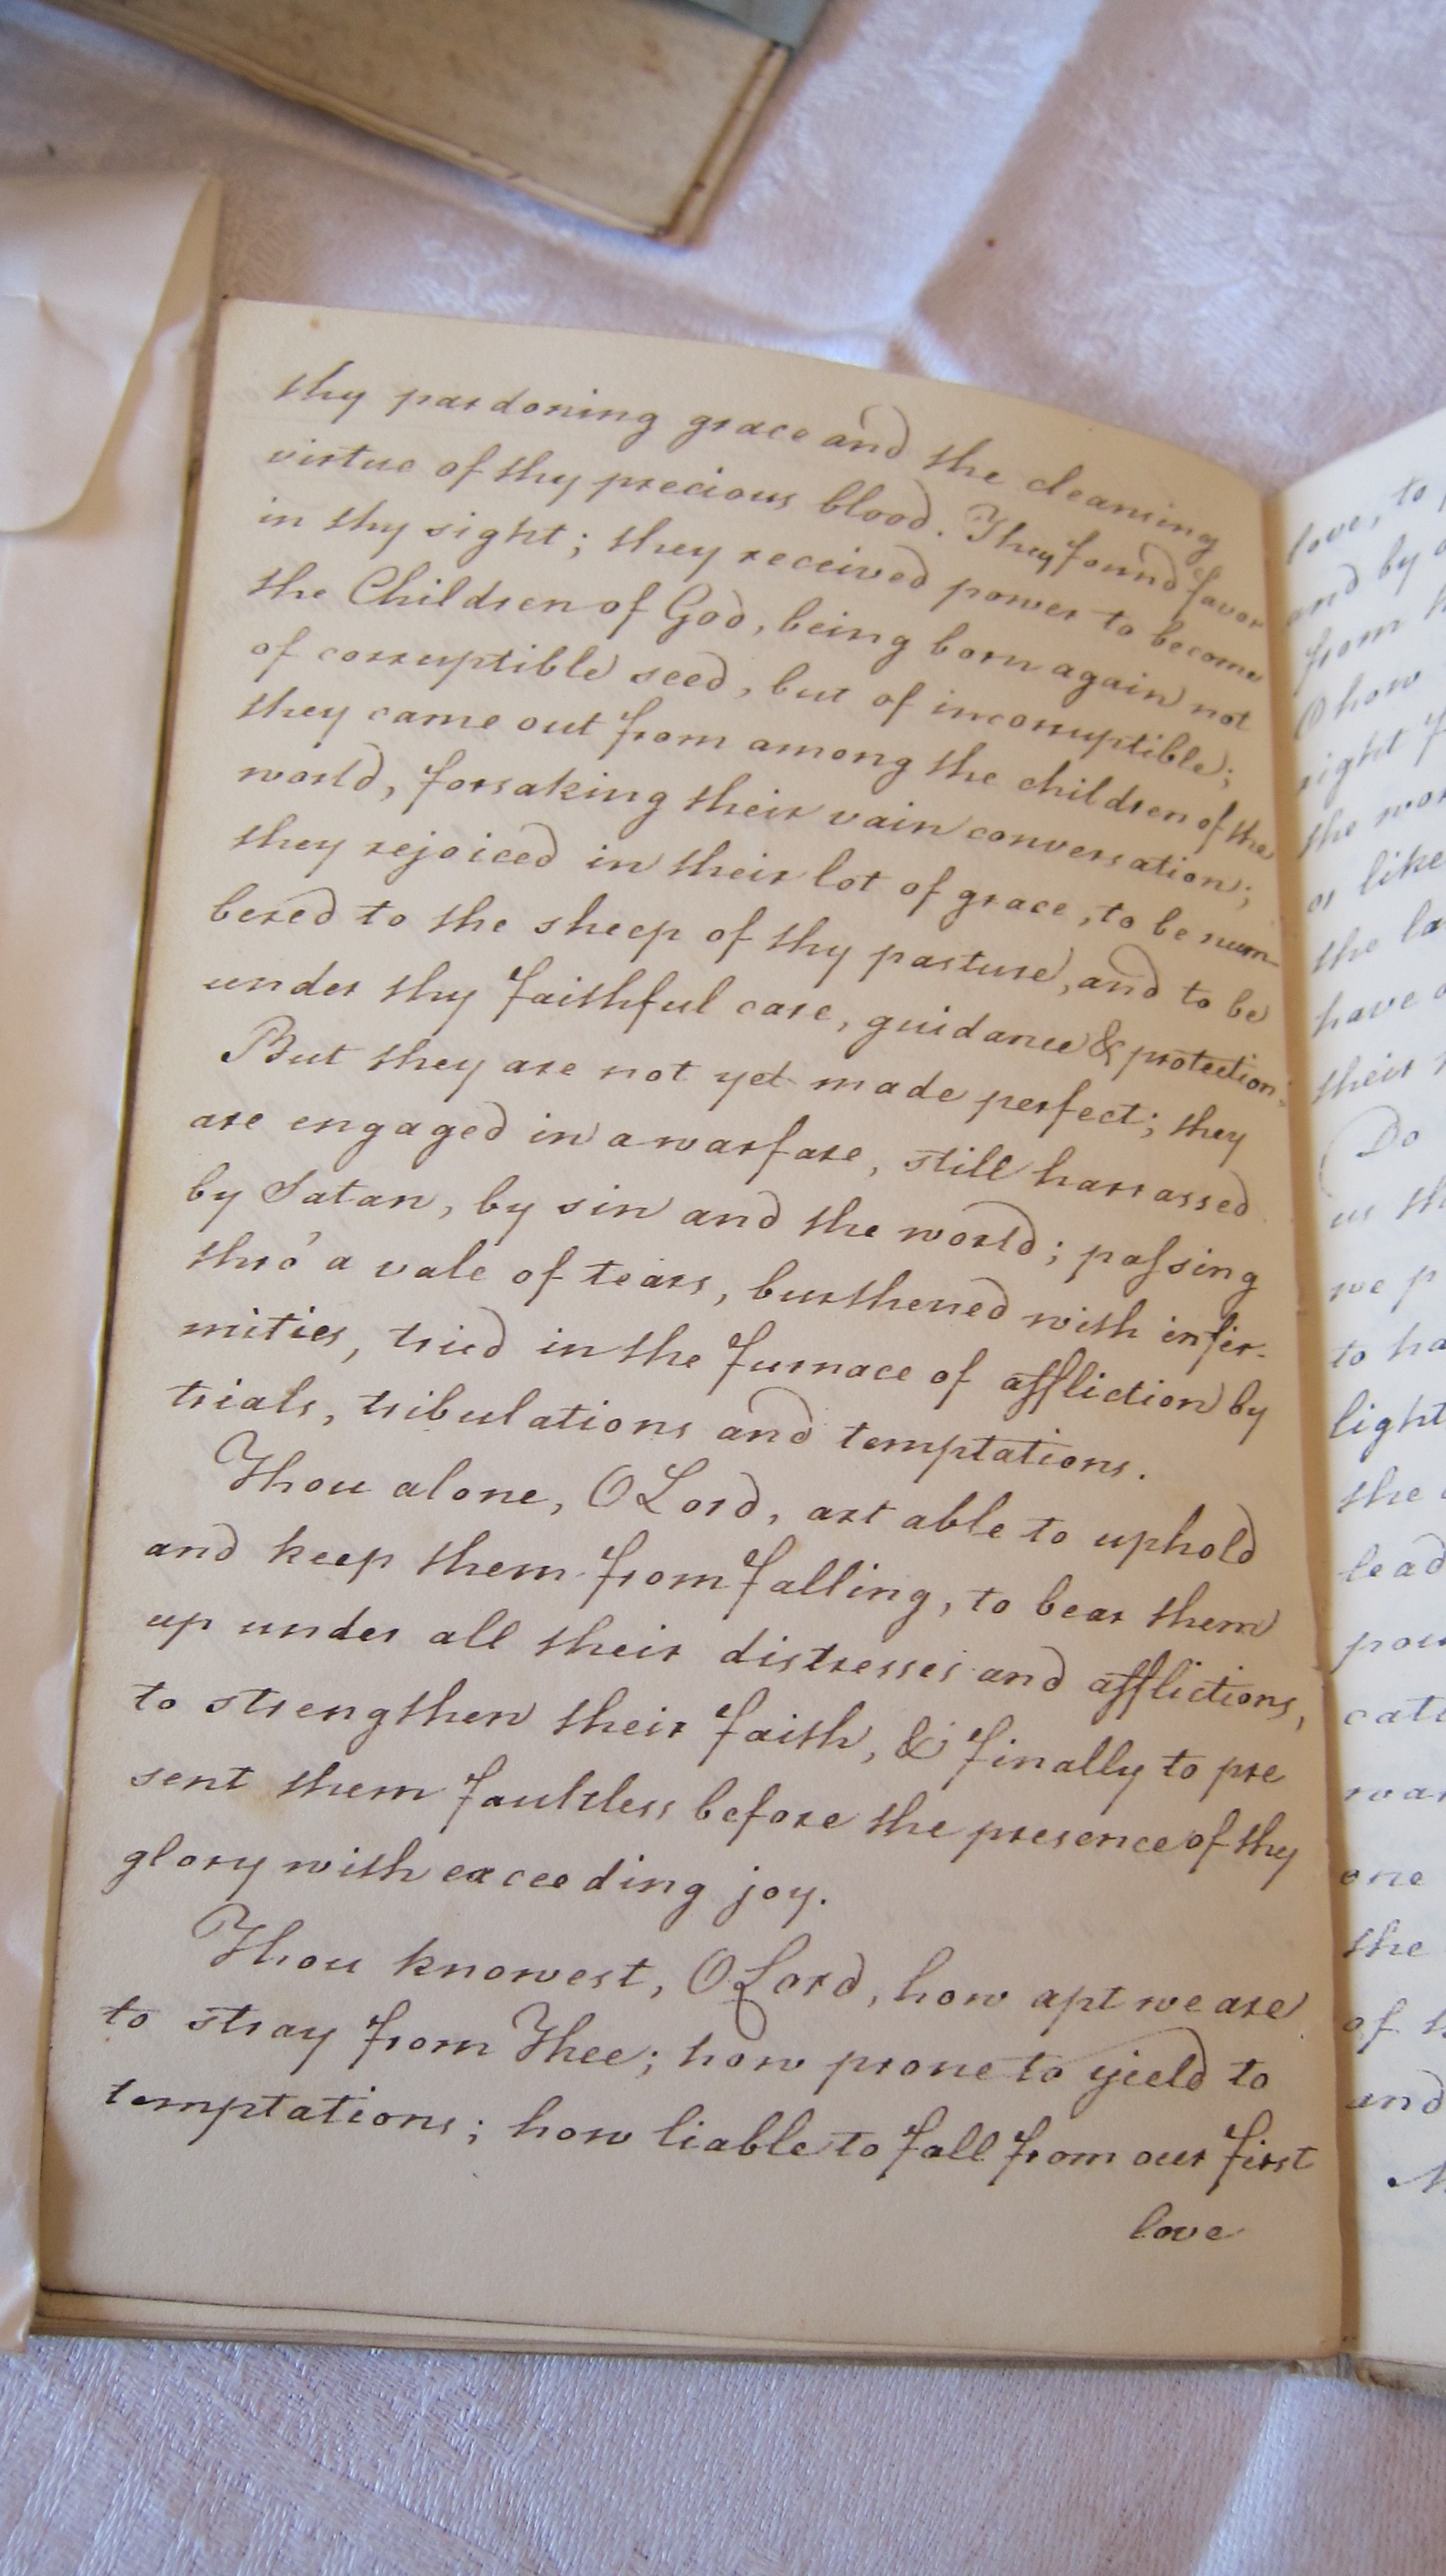 thy pardoning grace and the cleansing
virtue of thy precious blood. They found favor
in thy sight; they received power to become
the Children of God, being born again not
of corruptible seed, but of incorruptible;
they came out from among the children of the
world, forsaking their vain conversation;
they rejoiced in their lot of grace, to be num-
bered to the sheep of thy pasture, and to be
under thy faithful care, guidance & protection;
But they are not yet made perfect; they
are engaged in a warfare, still harrassed
by Satan, by sin and the world; paſsing
thro' a vale of tears, burthened with infir-
mities, tried in the furnace of affliction by
trials, tribulations and temptations.
Thou alone, O Lord, art able to uphold
and keep them from falling, to bear them
up under all their distresses and afflictions,
to strengthen their faith, & finally to pre
sent them faultless before the presence of thy
glory with exceeding joy.
Thou knowest, O Lord, how apt we are
to stray from Thee; how prone to yield to
temptations; how liable to fall from our first
love
love, to
and by
from
O how
right
the
or like
the
have
their
Do
us
we
to
light
the
lead
one
the
of
and